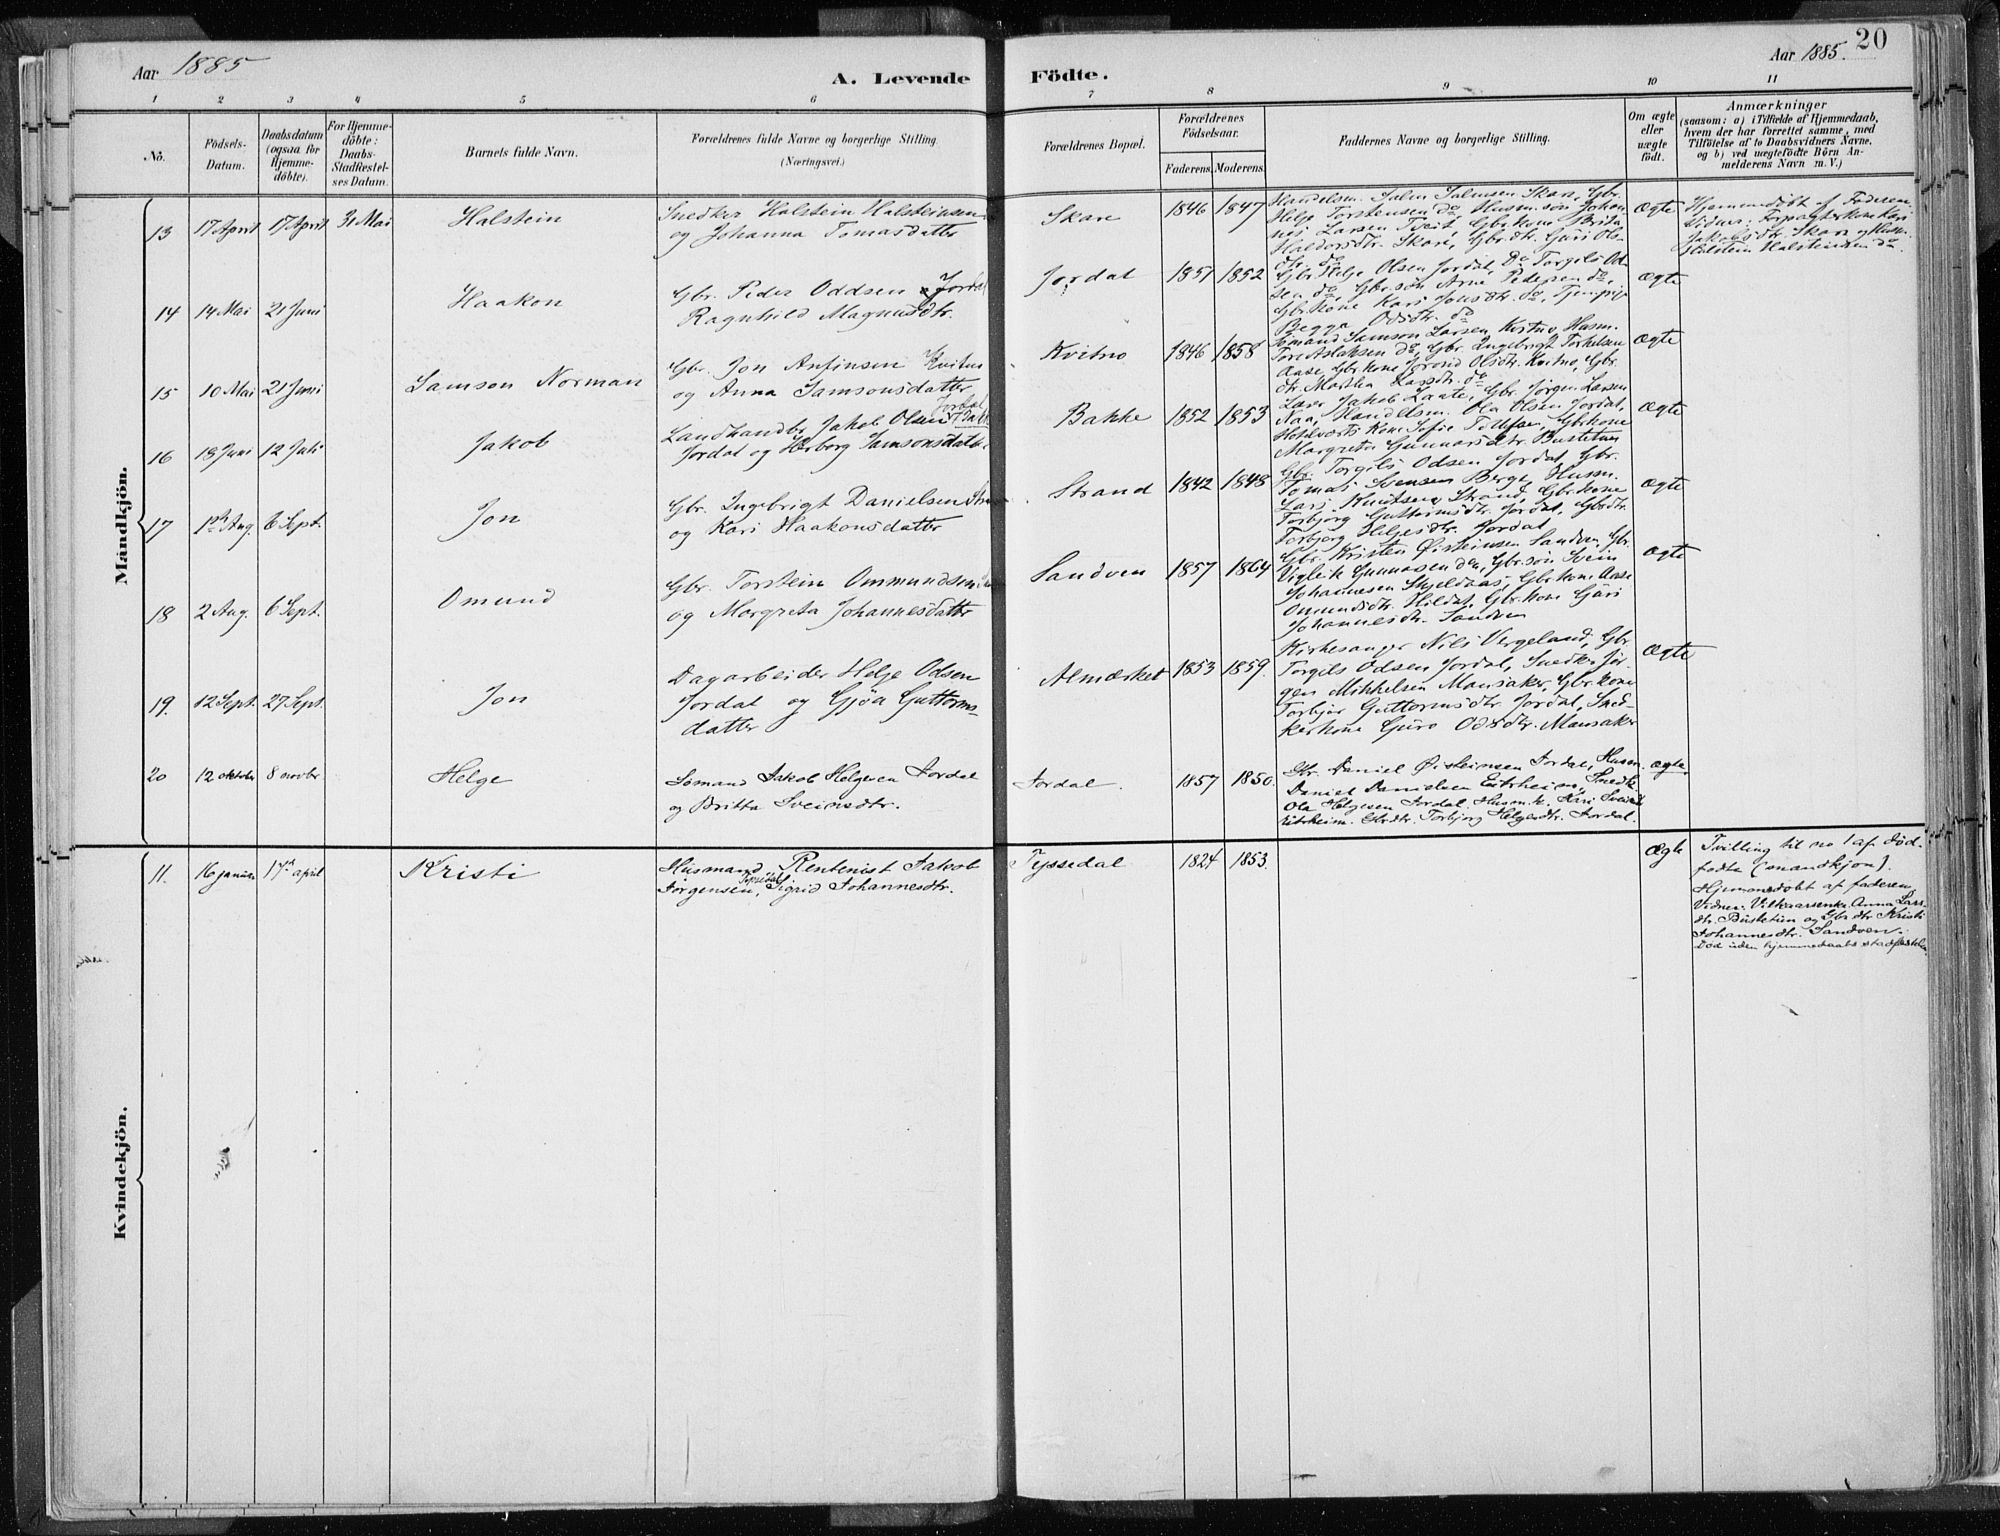 Aar 1885
A. Levende
Födte.
Aar 1885.
20
1 2 3 4 5 6 7 8 9 10 11
No.
Födsels-
Datum.
Daabsdatum
(ogsaa for
Hjemme-
döbte).
For Hjemme-
döbte:
Daabs-
Stadfæstel-
ses Datum.
Barnets fulde Navn.
Forældrenes fulde Navne og borgerlige Stilling.
(Næringsvei.)
Forældrenes Bopæl.
Forældrenes
Födselsaar.
Faderens. Moderens.
Faddernes Navne og borgerlige Stilling.
Om ægte
eller
uægte
födt.
Anmærkninger
(saasom: a) i Tilfælde af Hjemmedaab,
hvem der har forrettet samme, med
Tilföielse af to Daabsvidners Navne,
og b) ved uægtefödte Börn An-
melderens Navn m. V.)
Mandkjön.
13 17 April 17 April 31 Mai Halstein
Snedker Halstein Halsteinsen
og Johanna Tomasdatter
Skare 1846 1847
Handelsm. Salm. Salmsen Skare, Gbr.
Helje Torstensen do, Husm.søn Johan-
nes Larsen Tveit, Gbr.kone Brita
Haldorsdtr. Skare, Gbr.dtr. Guri Ols-
dtr. do
ægte
Hjemmedöbt af Faderen
Vidner: Forpagterkone Kari
Jakobsdtr. Skare og Husm.
Halstein Halsteinsen do.
14 14 Mai 21 Juni Haakon
Gbr. Peder Oddsen Jordal
Ragnhild Magnusdtr.
Jordal 1851 1852
Gbr. Helje Olsen Jordal, Do Torgils Od-
sen do, Gbr.søn Arne Pedersen do,
Gbr.kone Kari Jonsdtr. do, Tjenpige
Begga Odsdtr. do
ægte
15 10 Mai 21 Juni Samson Norman
Gbr. Jon Anfinsen Kvitno
og Anna Samsonsdatter
Kvitno 1846 1858
Sömand Samson Larsen Kvitno, Husm.
Tore Aslaksen do, Gbr. Ingebrigt Torkelsen
Aase, Gbr.kone Jorond Olsdtr. Kvitno, Gbr.
dtr. Martha Larsdtr. do
ægte
16 18 Juni 12 Juli Jakob
Landhandler Jakob Olsen
Jordal
Jordal og Herborg Samsonsdatter
Bakke 1852 1853
Lærer Jakob Zaate, Gbr. Jørgen Larsen
Naa, Handelsm. Ola Olsen Jordal,
Hotelværts Kone Sofie Tollefsen, Gbr.kone
Margreta Gunnarsdtr. Bustetun
ægte
17 1ste Aug. 6 Sept. Jon
Gbr. Ingebrigt Danielsen
og Kari Haakonsdatter
Strand 1842 1848
Gbr. Torgils Odsen Jordal, Gbr.
Tomas Svensen Berge, Husm.
Lars Knutsen Strand, Gbr.kone
Torbjorg Guttormsdtr. Jordal, Gbr.dtr.
Torbjorg Heljesdtr. Jordal
ægte
18 2 Aug. 6 Sept. Omund
Gbr. Torstein Ommundsen
og Margreta Johannesdatter
Sandven 1857 1864
Gbr. Kristen Øisteinsen Sandven, Gbr.
Vigleik Gunnarsen do, Gbr.søn Svein
Johannesen Skjeldaas, Gbr.kone Aase
Omundsdtr. Hildal, Gbr.kone Guri
Johannesdtr. Sandven
ægte
19. 12 Sept. 27 Sept. Jon
Dagarbeider Helje Odsen
Jordal og Gjöa Guttorms-
datter
Almærket 1853 1859.
Kirkesanger Nils Vergeland, Gbr.
Torgils Odsen Jordal, Snedker Jör-
gen Mikkelsen Mansaker, Gbr.kone
Torbjør Guttormsdtr. Jordal, Sned-
kerkone Guro Odsdtr. Mansaker
ægte
20 12 oktober 8 novbr. Helge
Sömand Jakob Helgesen Jordal
og Britta Sveinsdtr.
Jordal. 1857 1850.
Gbr. Daniel Øisteinsen Jordal, Husm.
Daniel Danielsen Eitrheim, Snedk.
Ola Helgesen Jordal. Husm.k. Kari Sveinsd.
Eitrheim. Gbr.dtr. Torbjorg Helgesdtr. Jordal.
ægte
Kvindekjön.
11. 16 januar 17de april Kristi
Husmand Rentenist Jakob
Tyssedal
Jørgensen, Sigrid Johannesdtr.
Tyssedal 1824 1853.
Ægte
Tvilling til no 1 af död-
fødte (mandkjøn).
Hjemmedøbt af faderen
Vidner: Vilkaarsenke Anna Lars-
dtr. Bustetun og Gbr.dtr. Kristi
Johannesdtr. Sandven.
Död uden hjemmedaabs stadfæstelse